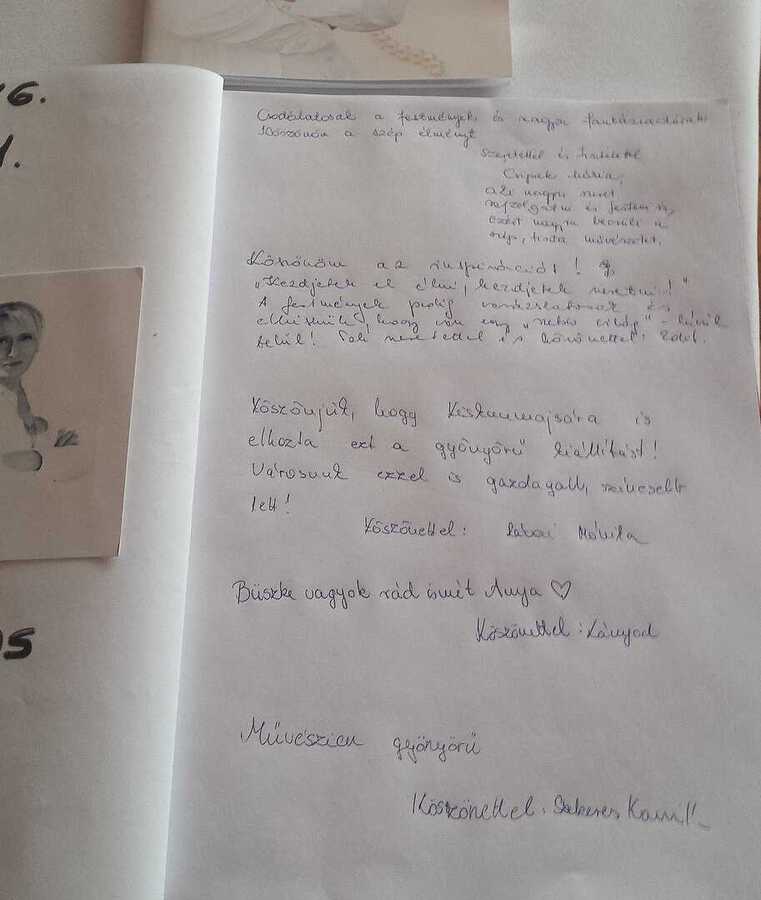 6.
1.
os
Csodálatosak a festmények és nagyon fantáziadúsak
Köszönöm a szép élményt
Szeretettel és tisztelettel
Csipek Mária,
aki nagyon szeret
rajzolgatni és festeni is,
ezért nagyra becsüli a
szép, tiszta művészetet.
Köszönöm az inspirációt!
"Kezdjetek el élni, kezdjetek szeretni!"
A festmények pedig varázslatosak és
elhiszük, hogy van egy "
belül! Sok szeretettel és köszönettel:
Köszönjük, hogy Kiskunmajsára is
elhozta ezt a gyönyörű kiállítást!
Városunk ezzel is gazdagabb, színesebb
lett!
Köszönettel: Mónika
Büszke vagyok rád ismét Anya ♡
Köszönettel: Lányod
Művészien gyönyörű
Köszönettel: Szekeres